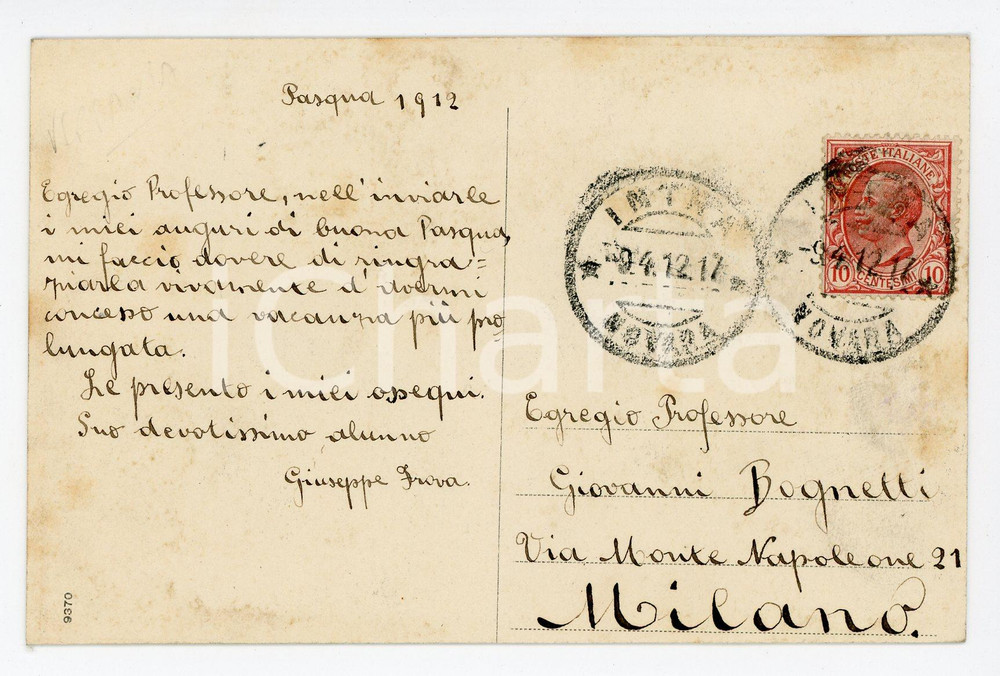 Pasqua 1912
Egregio Professore, nell'inviarle
i miei auguri di buona Pasqua,
mi faccio dovere di ringra=
ziarla vivamente d'avermi
concesso una vacanza più pro
lungata.
Le presento i miei ossequi.
Suo devotissimo alunno
Giuseppe Frova.
9370
POSTE ITALIANE
10 CENTESIMI 10
INTRA
-9.4.12.17
NOVARA
-9.4.12.17
NOVARA
Egregio Professore
Giovanni Bognetti
Via Monte Napoleone 21
Milano.
iCharta